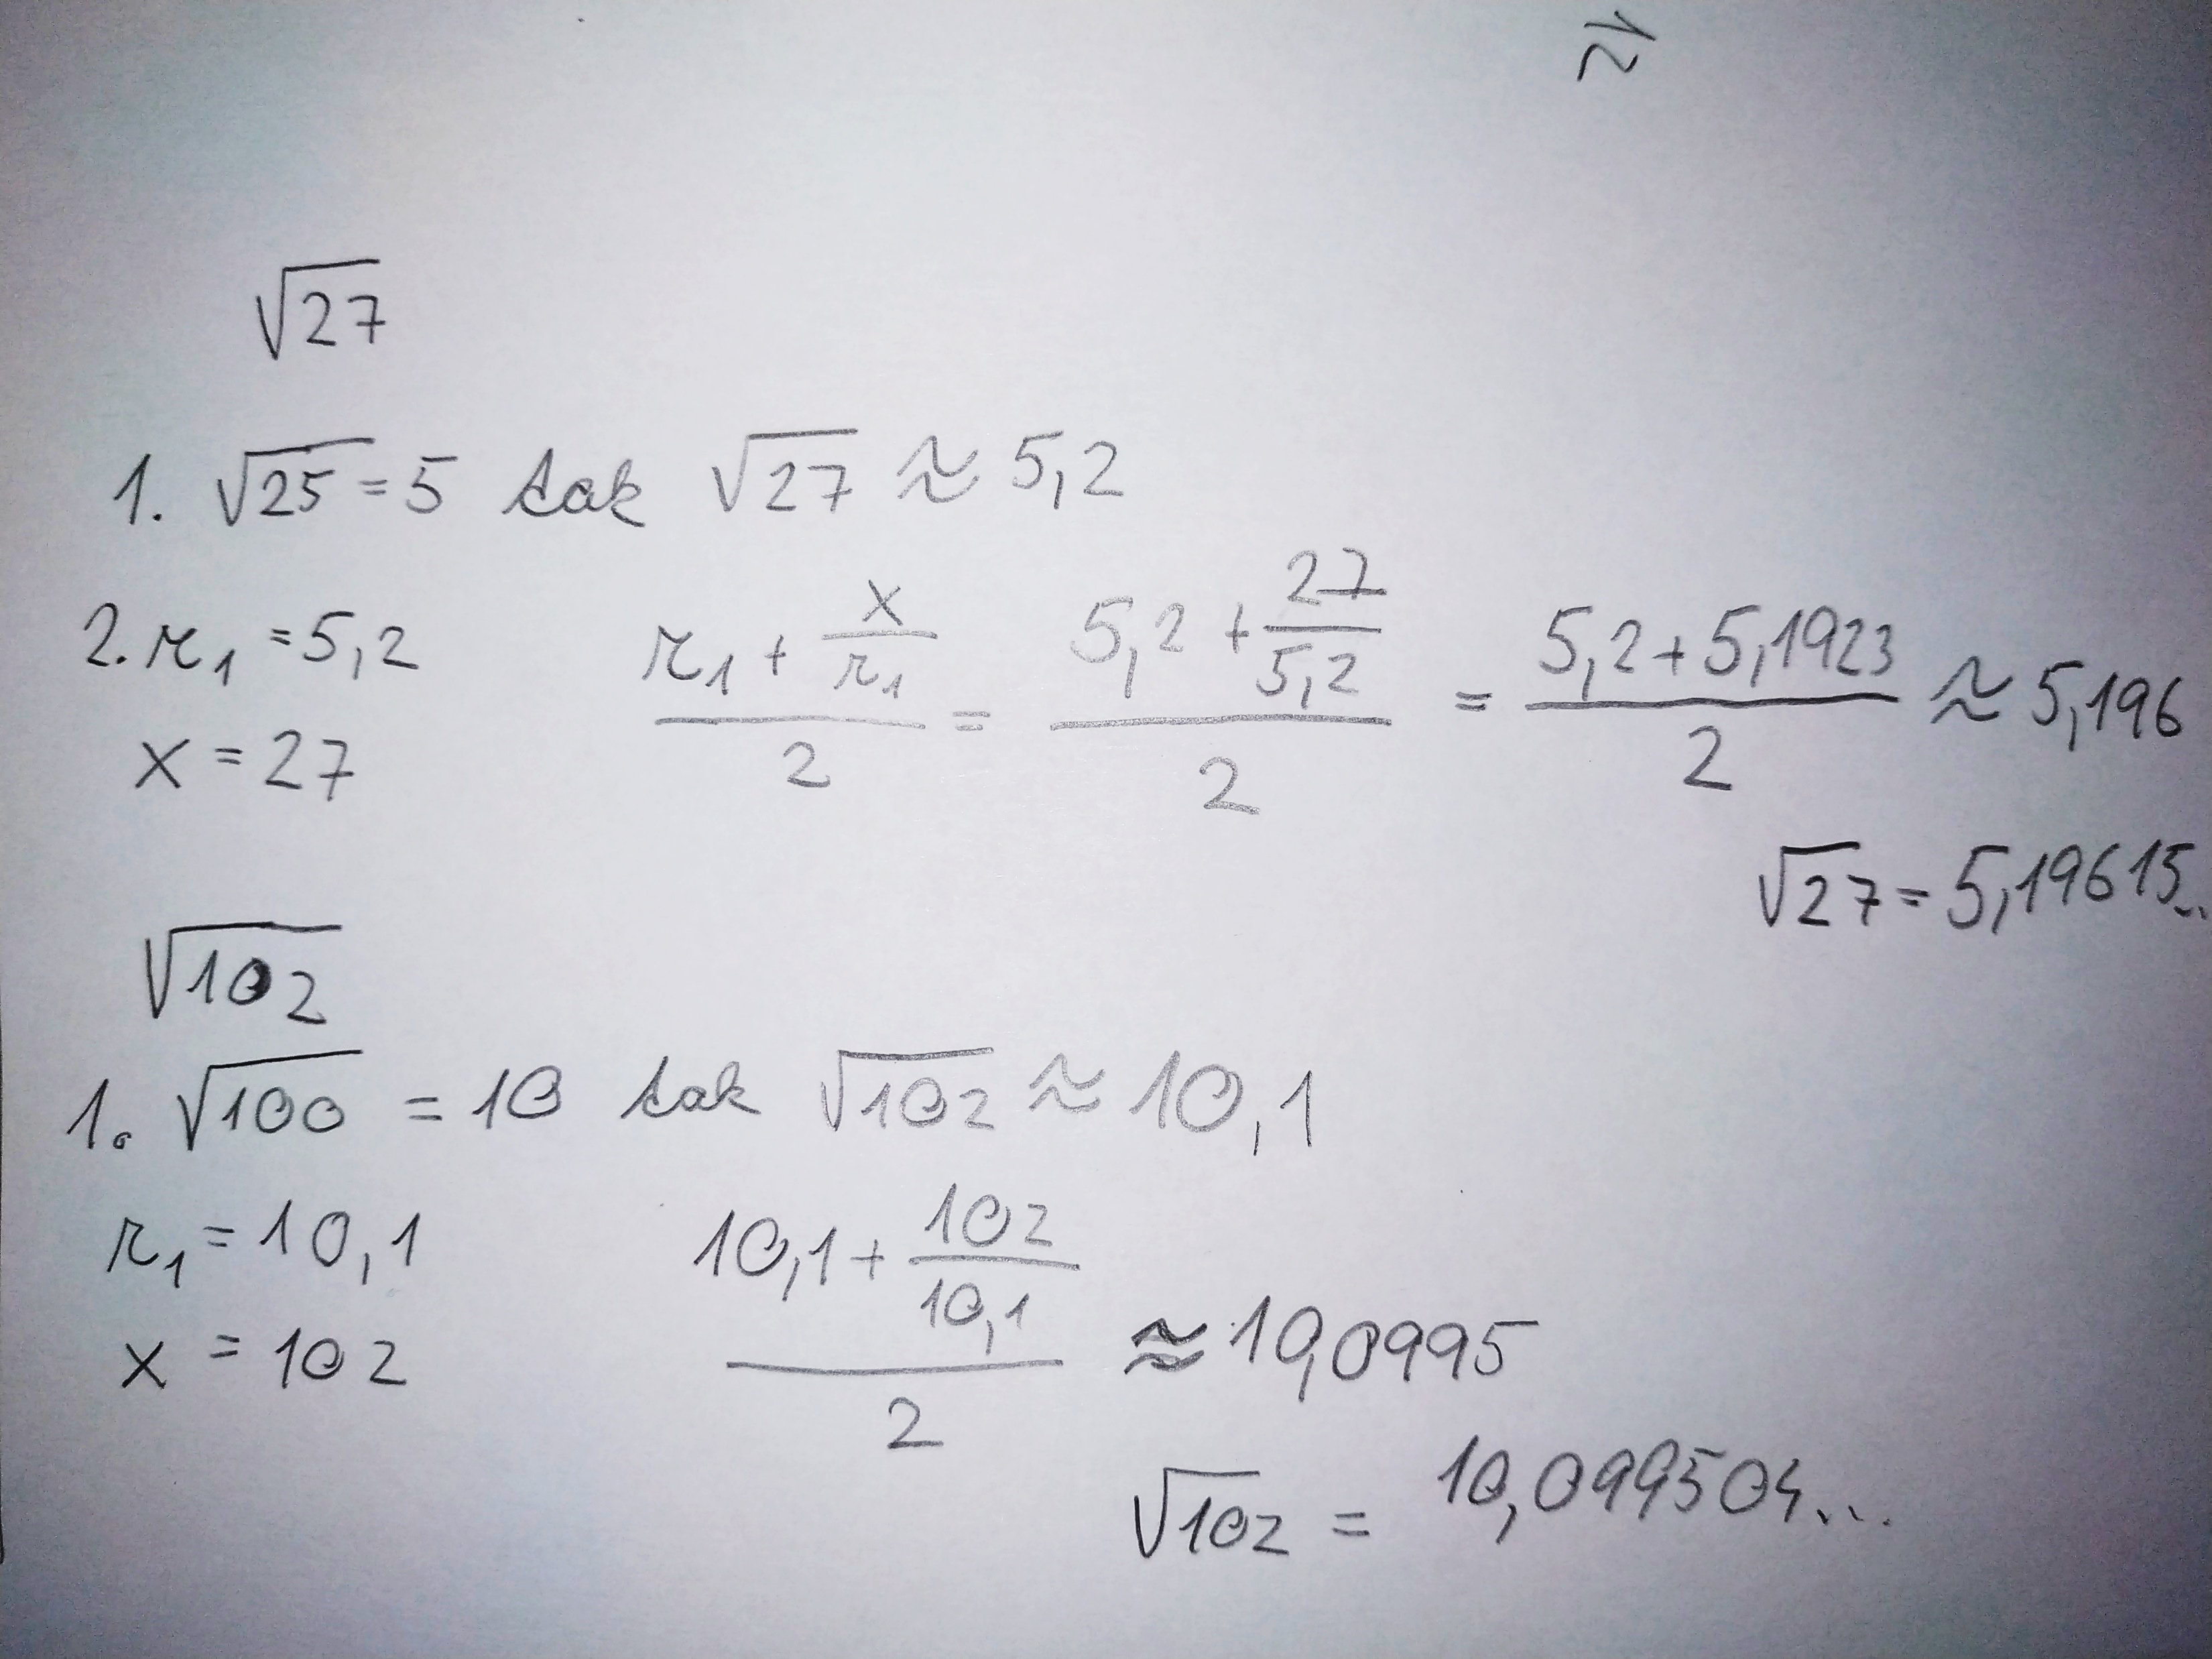 ≈
√27
1. √25 = 5 tak √27 ≈ 5,2
2. r₁ = 5,2 (r₁ + x/r₁)/2 = (5,2 + 27/5,2)/2 = (5,2 + 5,1923)/2 ≈ 5,196
x = 27
√27 = 5,19615...
√102
1. √100 = 10 tak √102 ≈ 10,1
r₁ = 10,1 (10,1 + 102/10,1)/2 ≈ 10,0995
x = 102
√102 = 10,099504...